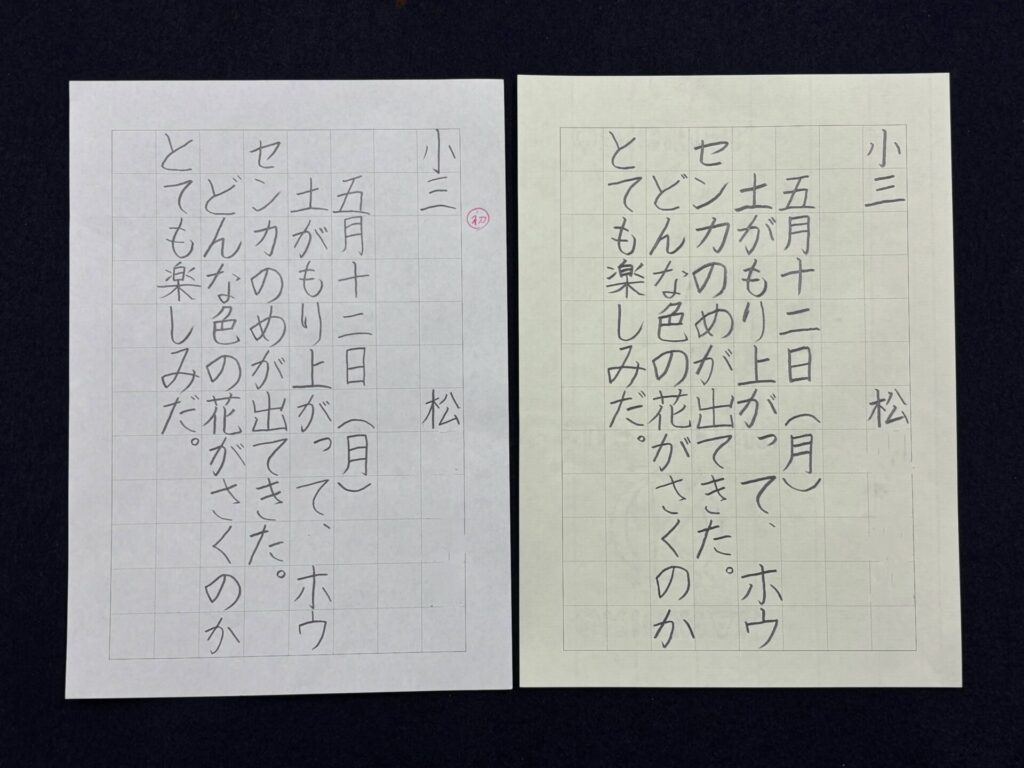 小三 松
五月十二日（月）
土がもり上がって、ホウ
センカのめが出てきた。
どんな色の花がさくのか
とても楽しみだ。
初
小三 松
五月十二日（月）
土がもり上がって、ホウ
センカのめが出てきた。
どんな色の花がさくのか
とても楽しみだ。